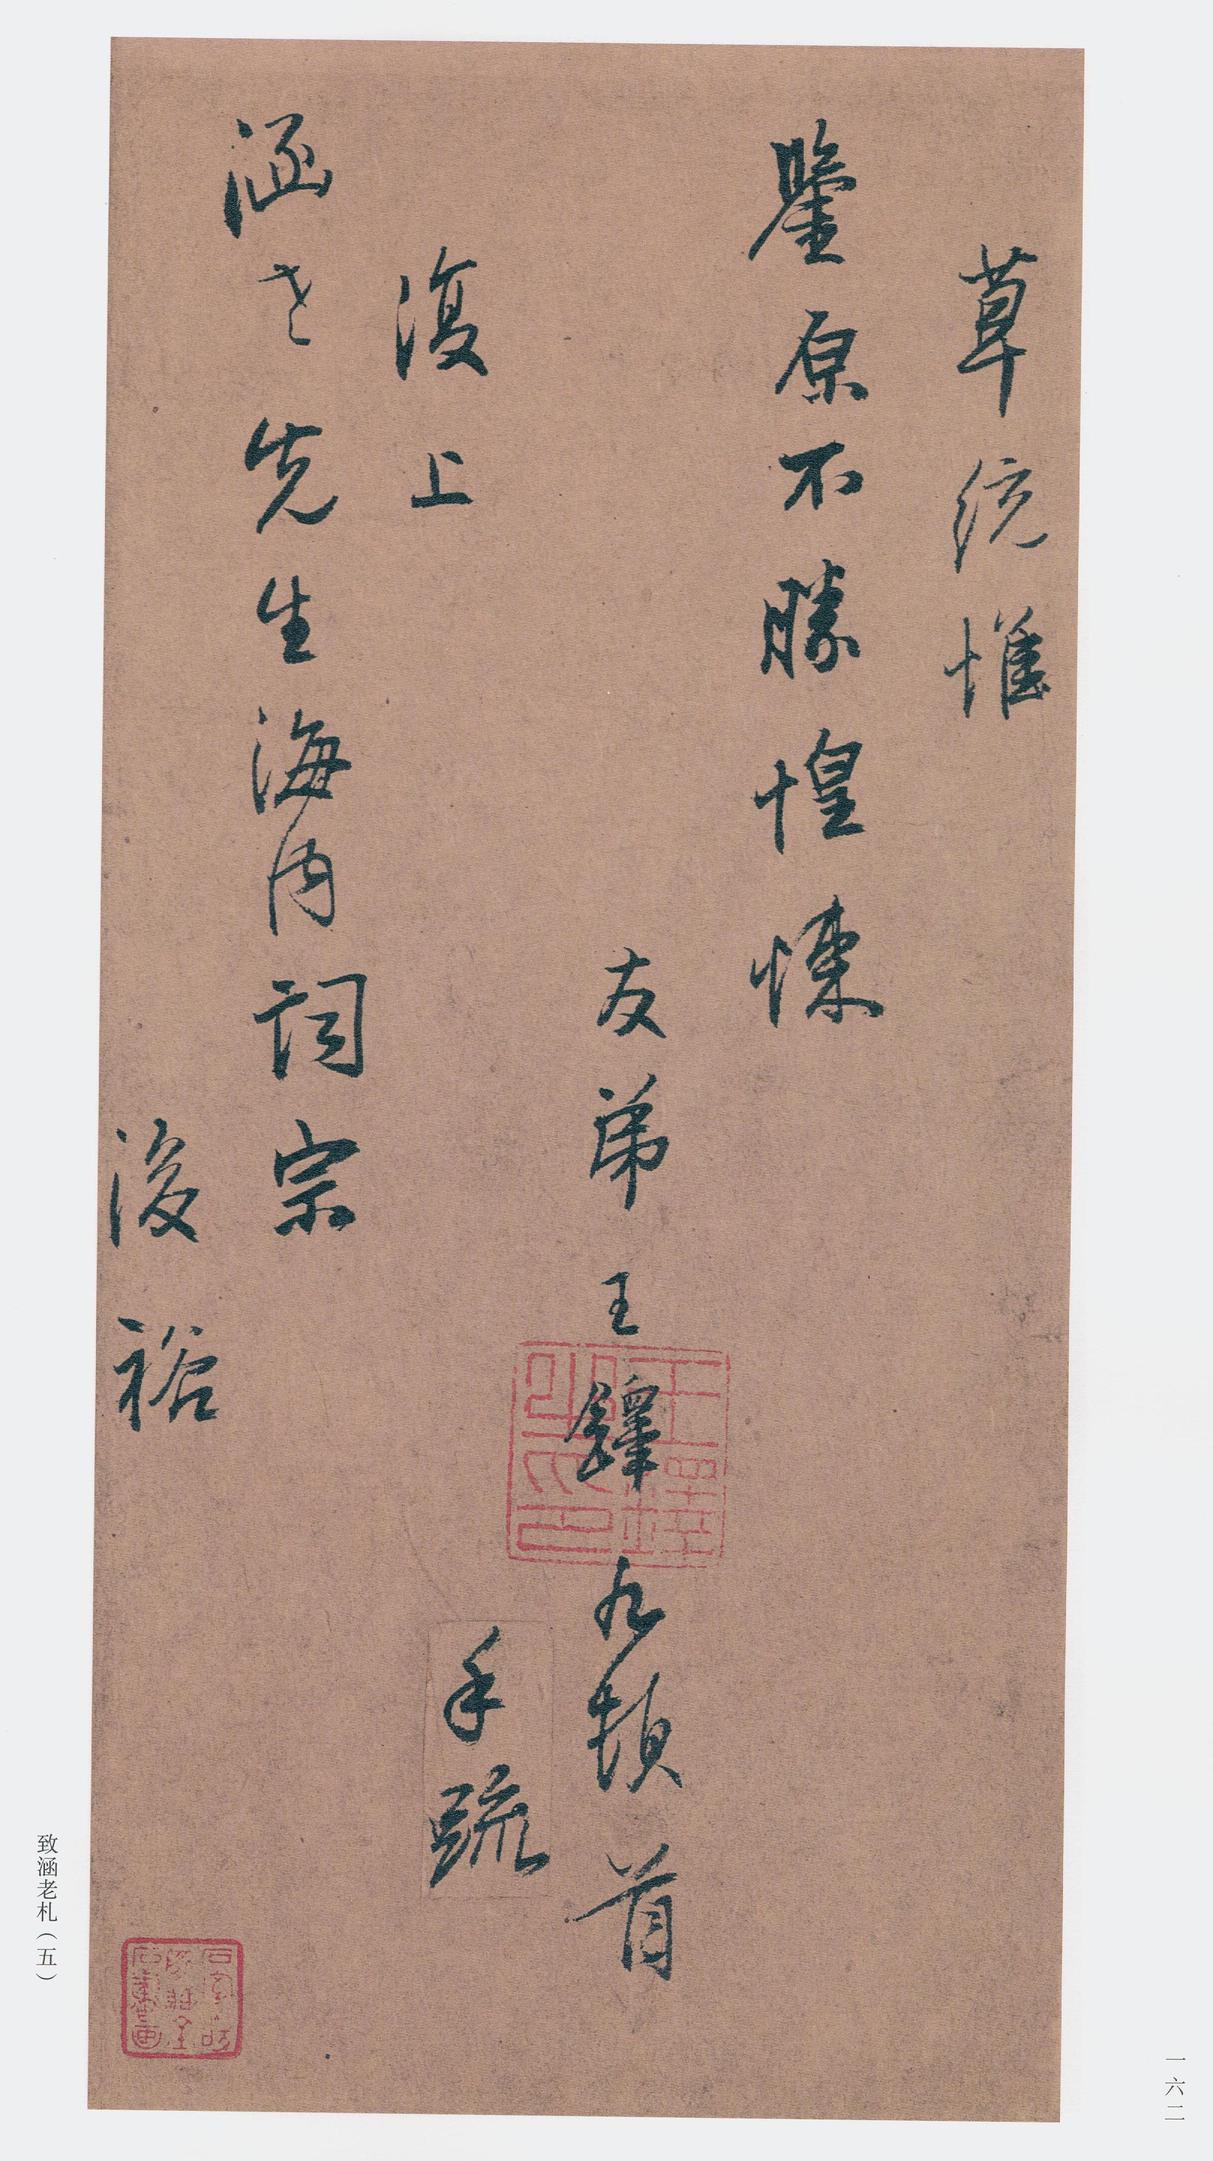 草統惟
鑒原不勝惶悚
友弟王鐸九頓首
手疏
復上
涵老先生海內詞宗
後裕
王鐸之印
致涵老札（五）
一六二